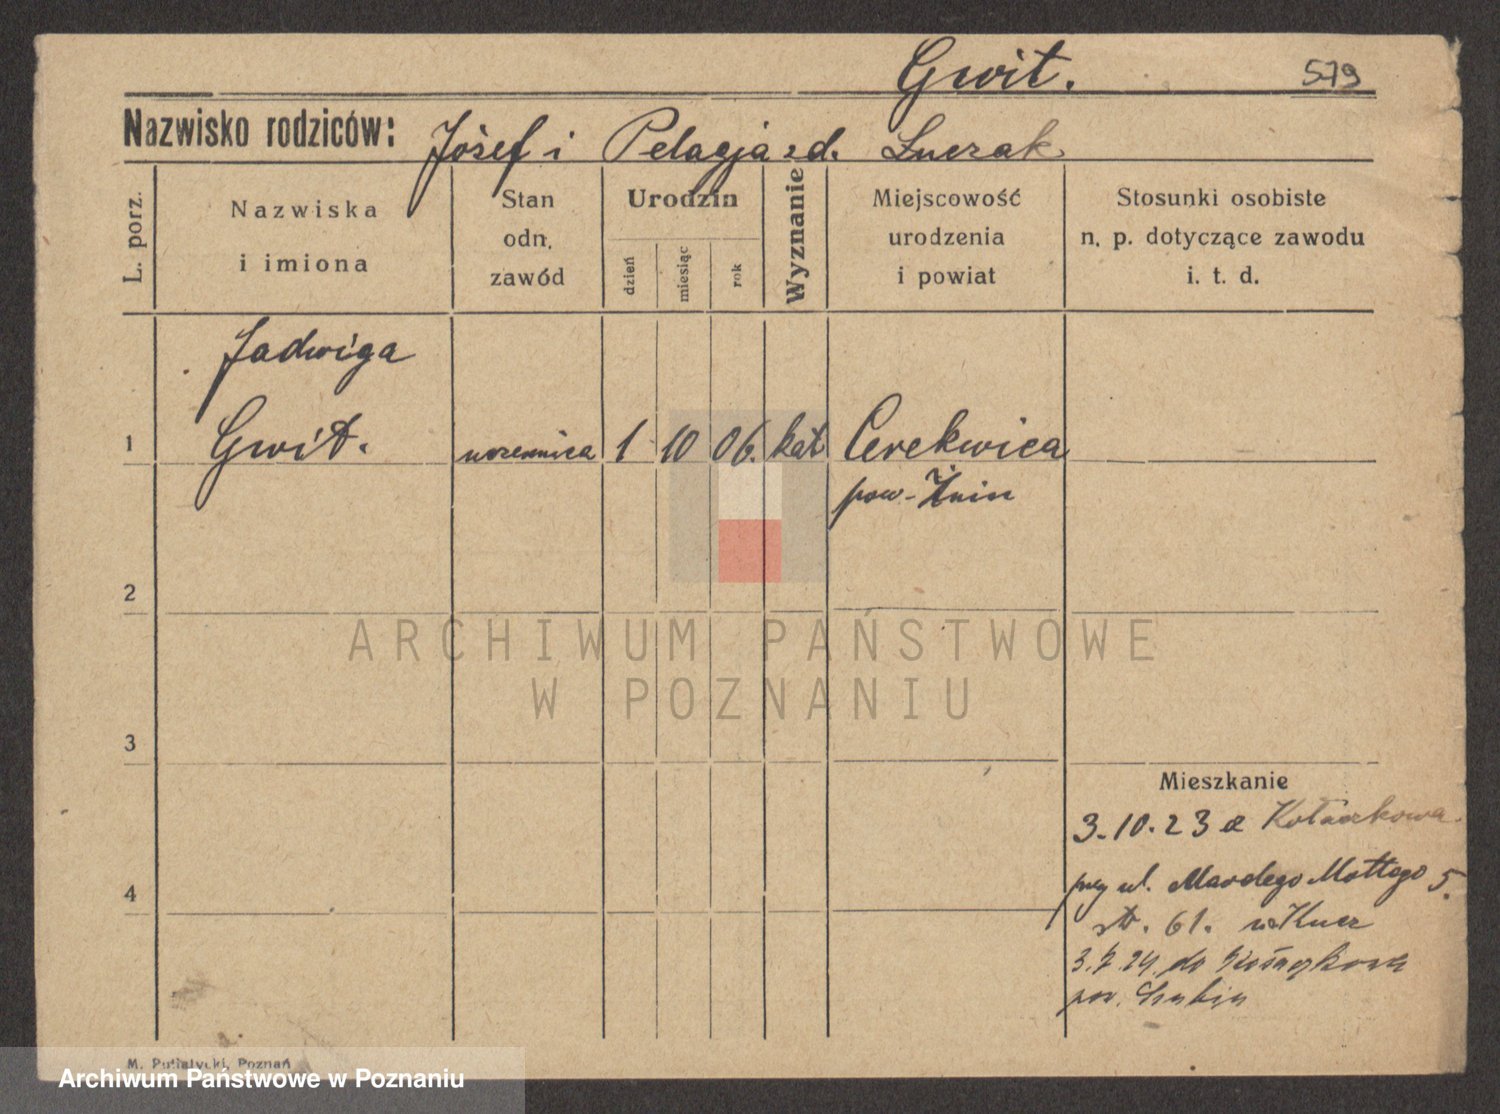 Gwit. 579
Nazwisko rodziców: Józef i Pelagja zd. Luczak
L. porz.
Nazwiska
i imiona
Stan
odn.
zawód
Urodzin
dzień
miesiąc
rok
Wyznanie
Miejscowość
urodzenia
i powiat
Stosunki osobiste
n. p. dotyczące zawodu
i. t. d.
Jadwiga
1 Gwit. uczennica 1 10 06. kat Cerekwica
pow. Żnin
2
ARCHIWUM PAŃSTWOWE
W POZNANIU
3
Mieszkanie
3.10.23 z Kołaczkowa
przy ul. Mardego Mottego 5.
4
str. 61. u Kucz
3.7.24. do Kołaczkowa
pow. Szubin
M. Putiatycki, Poznań
Archiwum Państwowe w Poznaniu